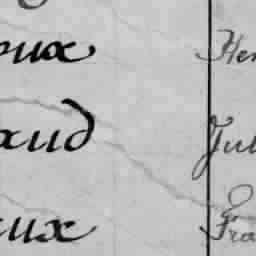 oux Hen
aud Jul
aux Fra